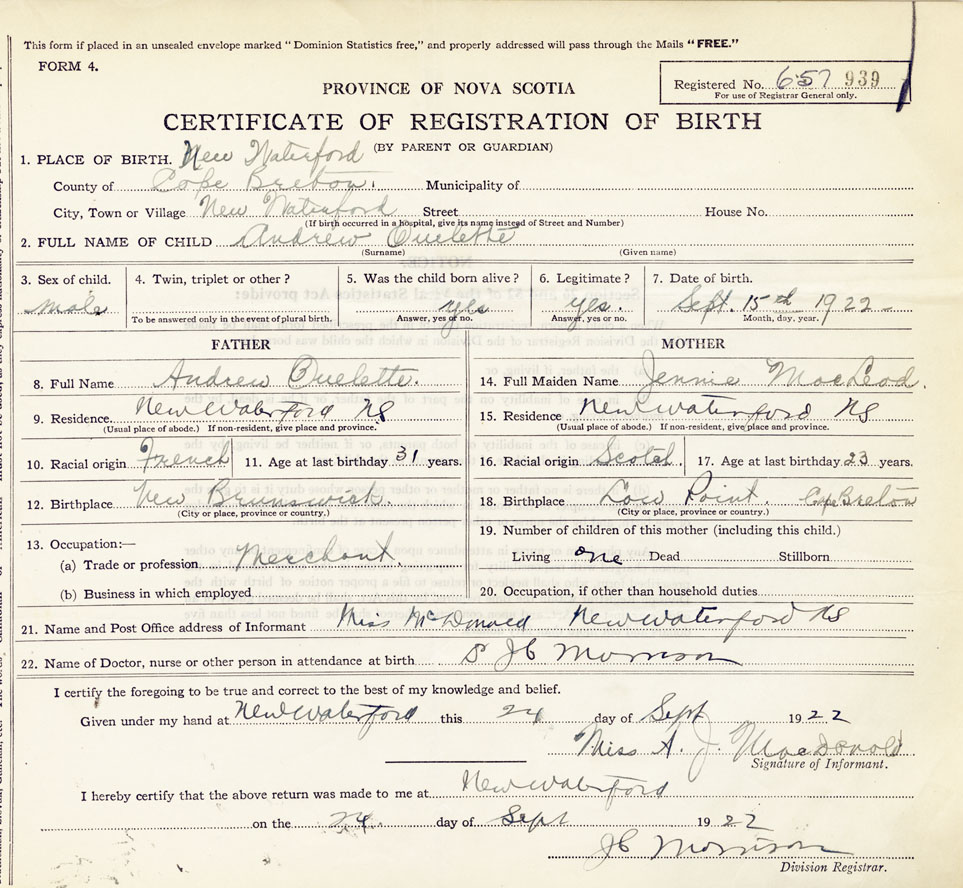 This form if placed in an unsealed envelope marked "Dominion Statistics free," and properly addressed will pass through the Mails "FREE."
FORM 4.
Registered No. 657 939
For use of Registrar General only.
PROVINCE OF NOVA SCOTIA
CERTIFICATE OF REGISTRATION OF BIRTH
(BY PARENT OR GUARDIAN)
1. PLACE OF BIRTH. New Waterford
County of Cape Breton. Municipality of
City, Town or Village New Waterford Street House No.
(If birth occurred in a hospital, give its name instead of Street and Number)
2. FULL NAME OF CHILD Andrew Ouelette
(Surname) (Given name)
3. Sex of child. 4. Twin, triplet or other? 5. Was the child born alive? 6. Legitimate? 7. Date of birth.
male yes yes. Sept. 15th 1922
To be answered only in the event of plural birth. Answer, yes or no. Answer, yes or no. Month, day, year.
FATHER MOTHER
8. Full Name Andrew Ouelette. 14. Full Maiden Name Jennie MacLeod.
9. Residence. New Waterford NS 15. Residence New Waterford NS
(Usual place of abode.) If non-resident, give place and province. (Usual place of abode.) If non-resident, give place and province.
10. Racial origin French 11. Age at last birthday 31 years. 16. Racial origin Scotch. 17. Age at last birthday 23 years.
12. Birthplace New Brunswick. 18. Birthplace Low Point. Cape Breton
(City or place, province or country.) (City or place, province or country.)
13. Occupation:— 19. Number of children of this mother (including this child.)
(a) Trade or profession Merchant. Living One Dead Stillborn
(b) Business in which employed 20. Occupation, if other than household duties
21. Name and Post Office address of Informant Miss McDonald New Waterford NS
22. Name of Doctor, nurse or other person in attendance at birth JC Morrison
I certify the foregoing to be true and correct to the best of my knowledge and belief.
Given under my hand at New Waterford this 24 day of Sept 1922
Miss A. J. MacDonald
Signature of Informant.
I hereby certify that the above return was made to me at New Waterford
on the 24 day of Sept 1922
JC Morrison
Division Registrar.